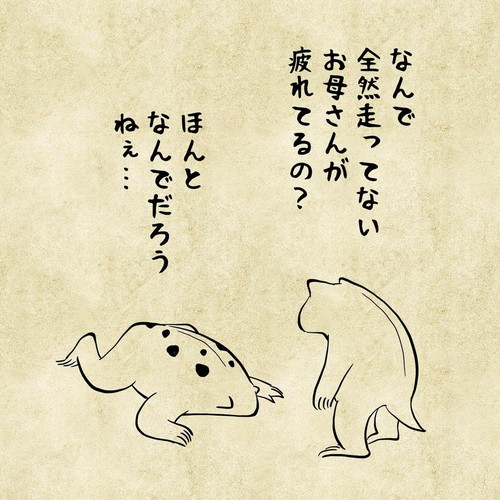 なんで
全然走ってない
お母さんが
疲れてるの？
ほんと
なんでだろう
ねぇ…